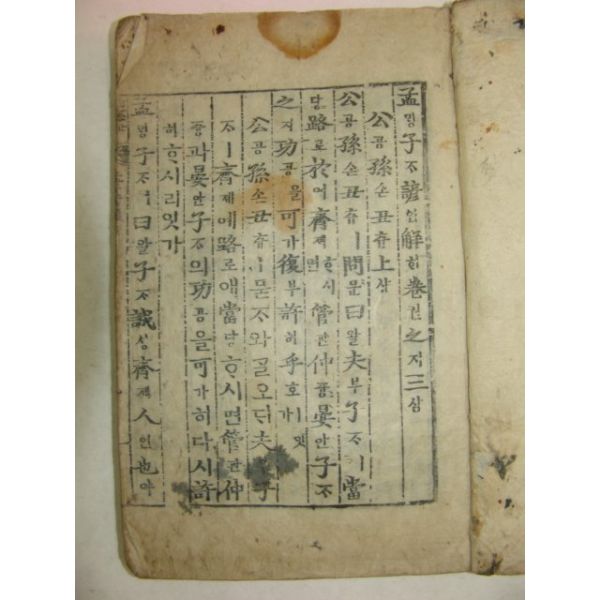 孟ᄆᆡᆼ子ᄌᆞ諺언解ᄒᆡ卷권之지三삼
公공孫손丑츄上샹
公공孫손丑츄ㅣ問문曰왈夫부子ᄌᆞㅣ當
당路로於어齊졔ᄒᆞ시면管관仲듕晏안子ᄌᆞ
之지功공을可가復부許허乎호ㅣ잇가
公공孫손丑츄ㅣ묻ᄌᆞ와ᄀᆞᆯ오ᄃᆡ夫부子
ᄌᆞㅣ齊졔예路로애當당ᄒᆞ시면管관仲
듕과晏안子ᄌᆞ의功공을可가히다시許
허ᄒᆞ시리잇가
孟ᄆᆡᆼ子ᄌᆞㅣ曰왈子ᄌᆞ誠셩齊졔人인也야